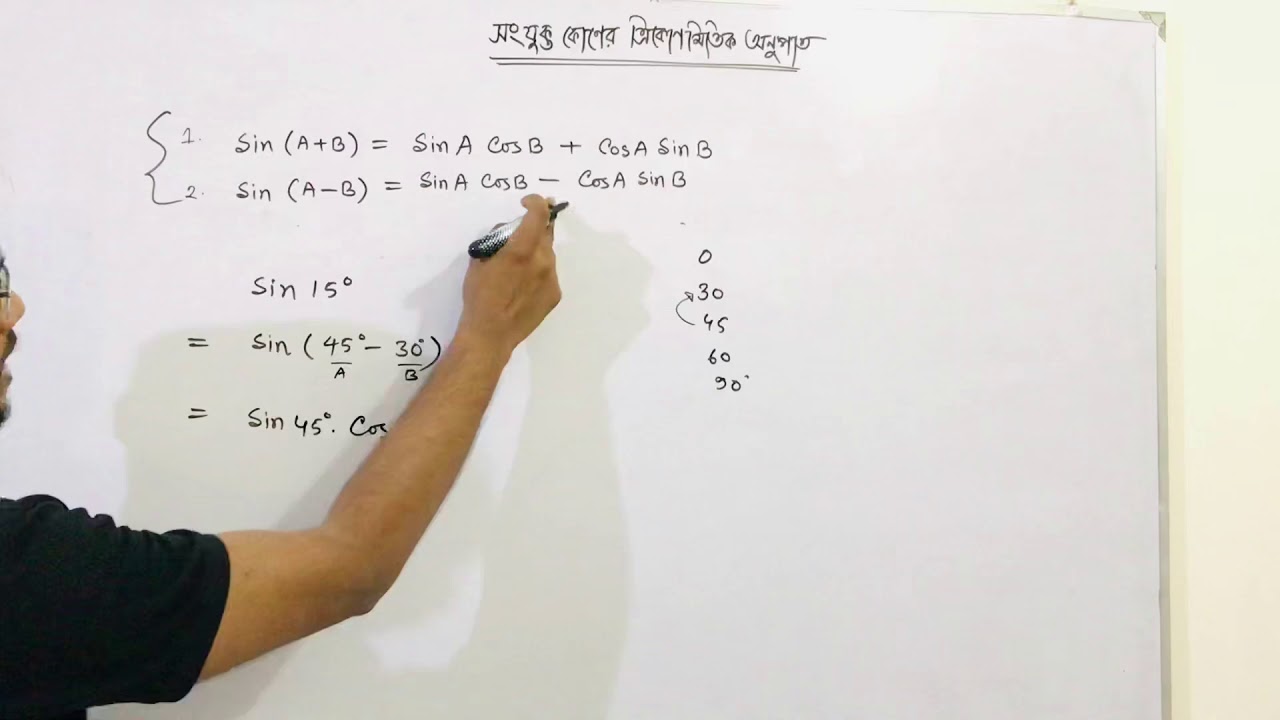 সংযুক্ত কোণের ত্রিকোণমিতিক অনুপাত
1. Sin (A+B) = SinA CosB + CosA SinB
2. Sin (A-B) = SinA CosB - CosA SinB
Sin 15°
= Sin ( 45° - 30° )
A B
= Sin 45°. Cos
0
30
45
60
90°